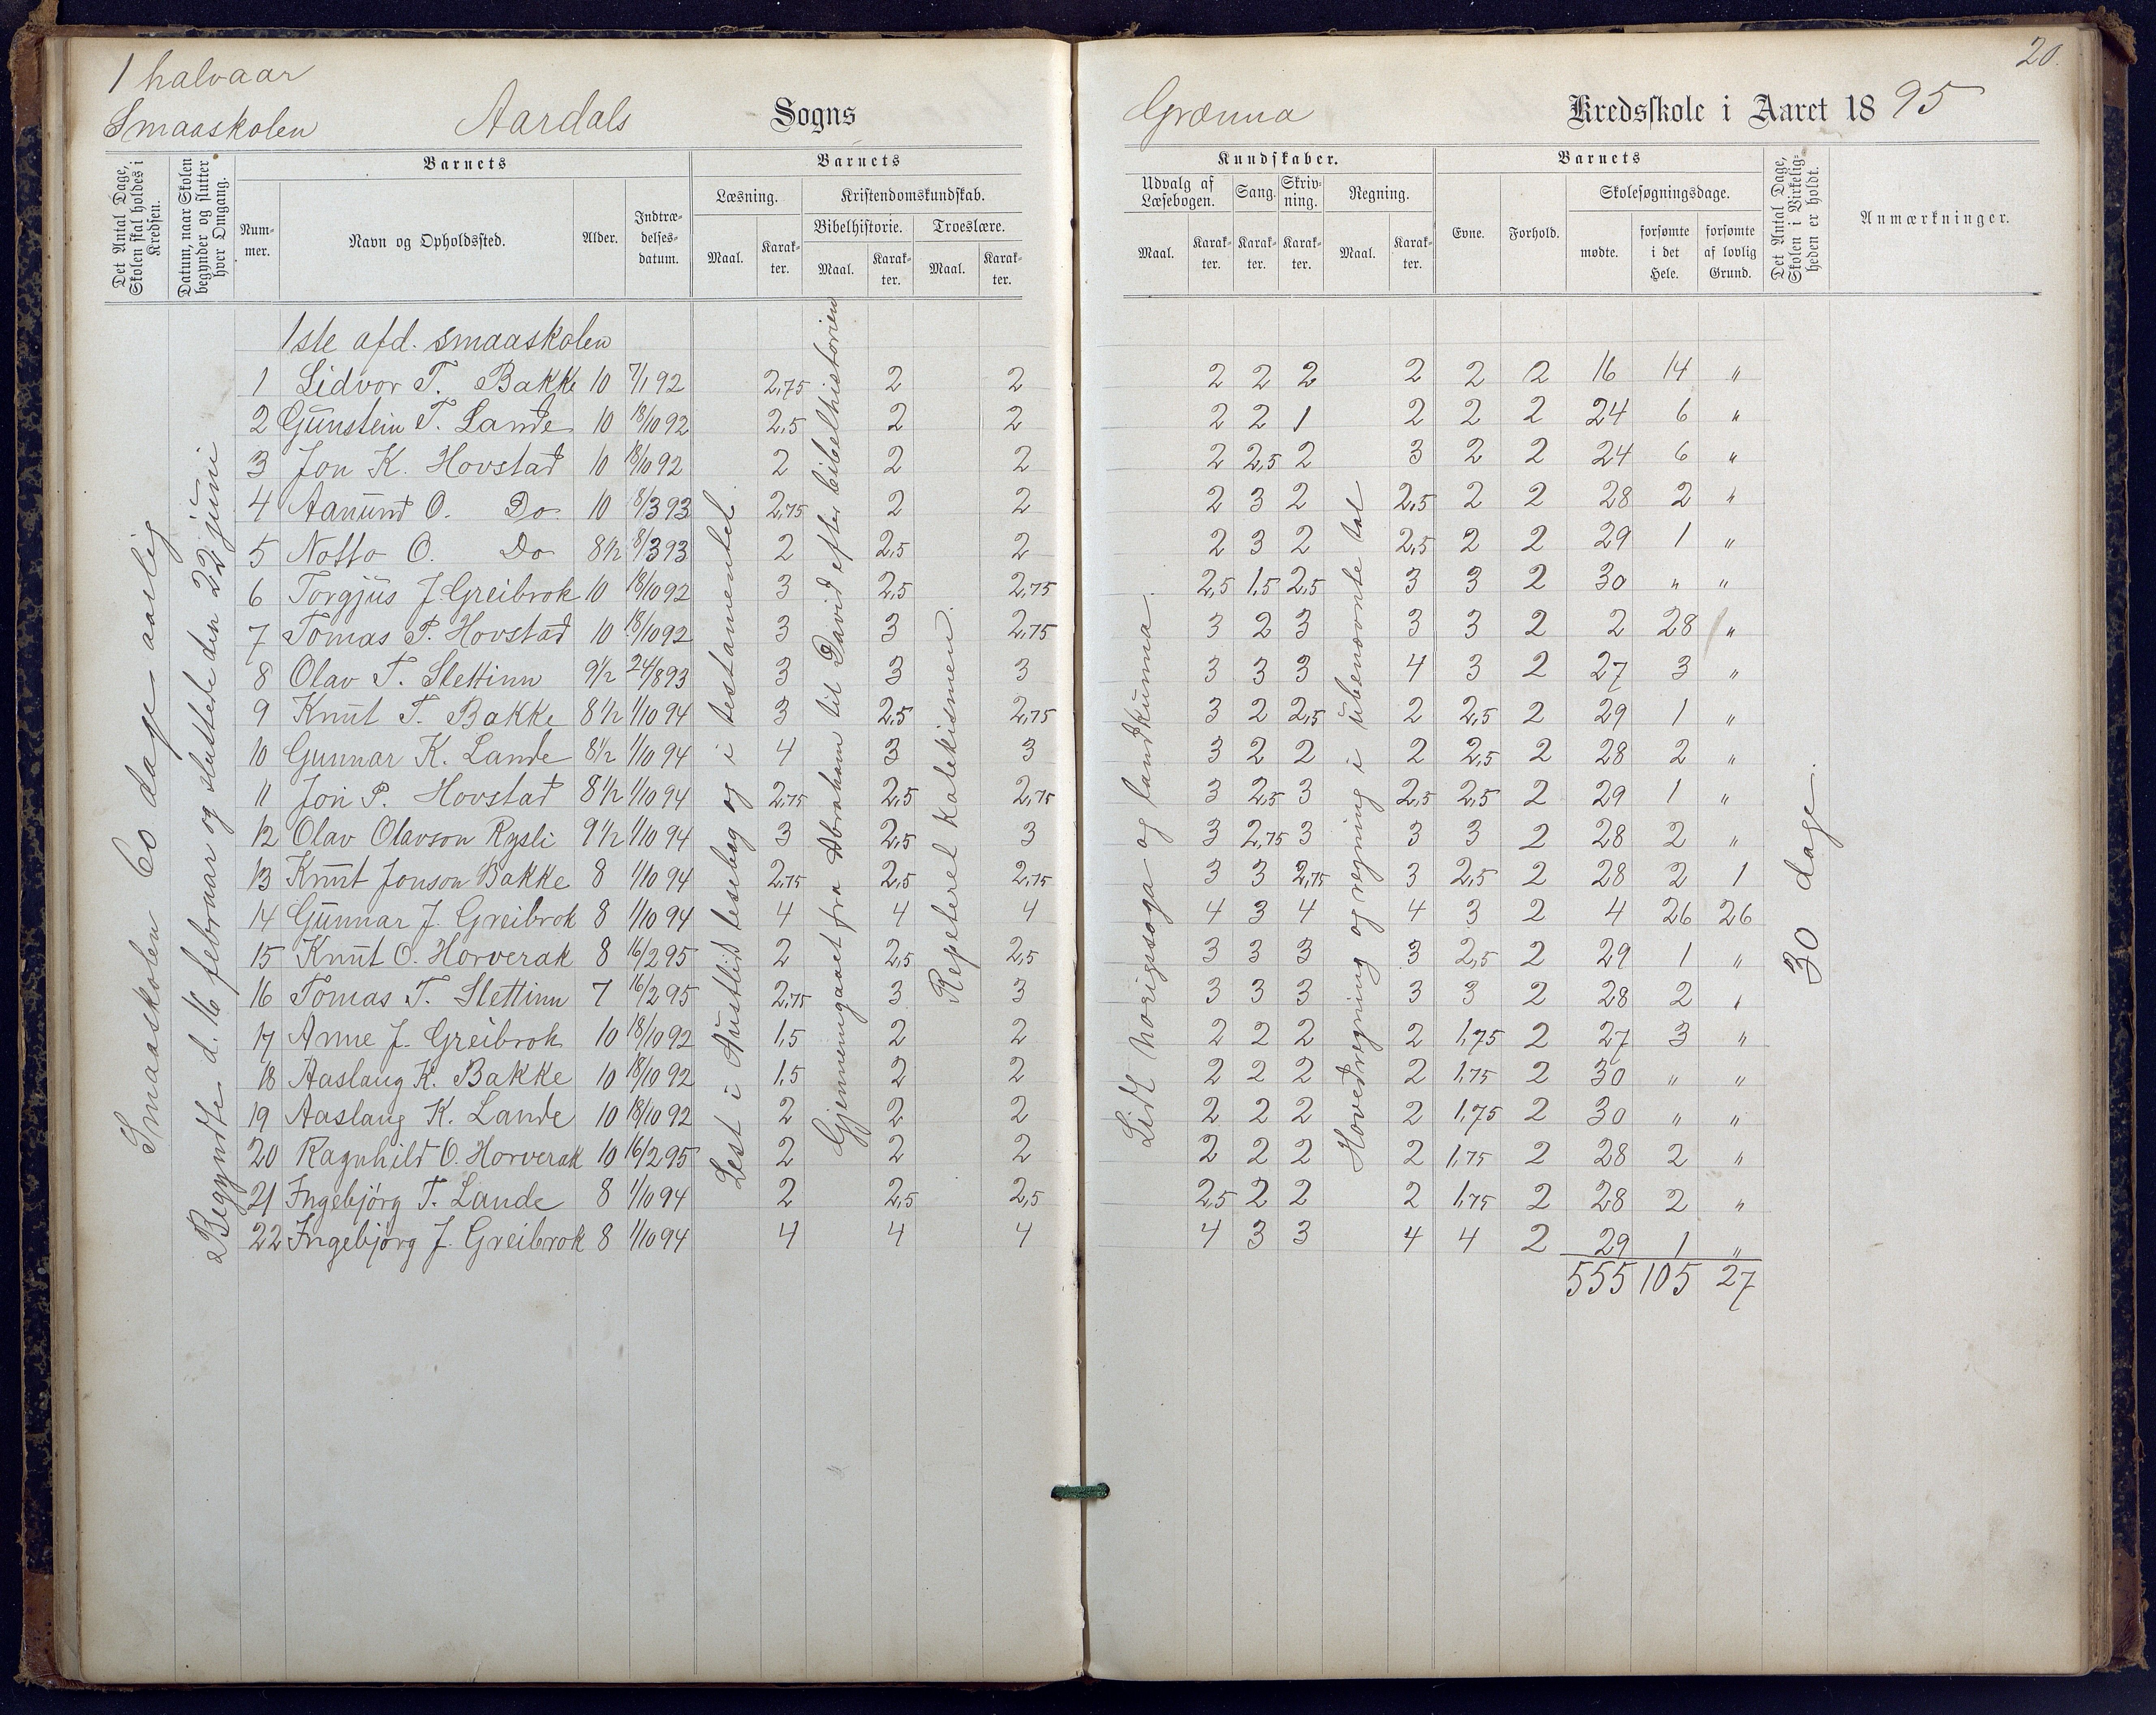 1 halvaar
Smaaskolen Aardals Sogns
Det Antal Dage, Skolen skal holdes i Kredsen.
Datum, naar Skolen begynder og slutter hver Omgang.
Barnets
Nummer.
Navn og Opholdssted.
Alder.
Indtrædelsesdatum.
Barnets
Læsning.
Maal. Karakter.
Kristendomskundskab.
Bibelhistorie.
Maal. Karakter.
Troeslære.
Maal. Karakter.
Smaaskolen 60 dage aarlig
Begyndte d. 16 februar og sluttede den 22 juni
Lest i Austlid lesebog og i testamentet
Gjennemgaaet fra Abraham til David efter bibelhistorien
Repeteret katekismen.
1ste afd. smaaskolen
1 Lidvor T. Bakke 10 7/1 92 2,75 2 2
2 Gunstein T. Lande 10 18/10 92 2,5 2 2
3 Jon K. Hovstad 10 18/10 92 2 2 2
4 Aanund O. Do 10 8/3 93 2,75 2 2
5 Notto O. Do 8 1/2 8/3 93 2 2,5 2
6 Torgjus J. Greibrok 10 18/10 92 3 2,5 2,75
7 Tomas P. Hovstad 10 18/10 92 3 3 2,75
8 Olav T. Slettinn 9 1/2 24/8 93 3 3 3
9 Knut T. Bakke 8 1/2 1/10 94 3 2,5 2,75
10 Gunnar K. Lande 8 1/2 1/10 94 4 3 3
11 Jon P. Hovstad 8 1/2 1/10 94 2,75 2,5 2,75
12 Olav Olavson Rysli 9 1/2 1/10 94 3 2,5 3
13 Knut Jonson Bakke 8 1/10 94 2,75 2,5 2,75
14 Gunnar J. Greibrok 8 1/10 94 4 4 4
15 Knut O. Horverak 8 16/2 95 2 2,5 2,5
16 Tomas T. Slettinn 7 16/2 95 2,75 3 3
17 Anne J. Greibrok 10 18/10 92 1,5 2 2
18 Aaslaug K. Bakke 10 18/10 92 1,5 2 2
19 Aaslaug K. Lande 10 18/10 92 2 2 2
20 Ragnhild O. Horverak 10 16/2 95 2 2 2
21 Ingebjörg T. Lande 8 1/10 94 2 2,5 2,5
22 Ingebjörg J. Greibrok 8 1/10 94 4 4 4
20.
Grænna Kredsskole i Aaret 1895
Kundskaber.
Udvalg af Læsebogen.
Maal. Karakter.
Sang.
Karakter.
Skrivning.
Karakter.
Regning.
Maal. Karakter.
Barnets
Evne. Forhold.
Skolesøgningsdage.
mødte.
forsømte i det Hele.
forsømte af lovlig Grund.
Det Antal Dage, Skolen i Virkeligheden er holdt.
Anmærkninger.
Lidt norigssoga og landkunna.
Hovedregning og regning i ubenævnte tal
30 dage.
2 2 2 2 2 2 16 14 "
2 2 1 2 2 2 24 6 "
2 2,5 2 3 2 2 24 6 "
2 3 2 2,5 2 2 28 2 "
2 3 2 2,5 2 2 29 1 "
2,5 1,5 2,5 3 3 2 30 " "
3 2 3 3 3 2 2 28 "
3 3 3 4 3 2 27 3 "
3 2 2,5 2 2,5 2 29 1 "
3 2 2 2 2,5 2 28 2 "
3 2,5 3 2,5 2,5 2 29 1 "
3 2,75 3 3 3 2 28 2 "
3 3 2,75 3 2,5 2 28 2 1
4 3 4 4 3 2 4 26 26
3 3 3 3 2,5 2 29 1 "
3 3 3 3 3 2 28 2 "
2 2 2 2 1,75 2 27 3 "
2 2 2 2 1,75 2 30 " "
2 2 2 2 1,75 2 30 " "
2 2 2 2 1,75 2 28 2 "
2,5 2 2 2 1,75 2 28 2 "
4 3 3 4 4 2 29 1 "
555 105 27